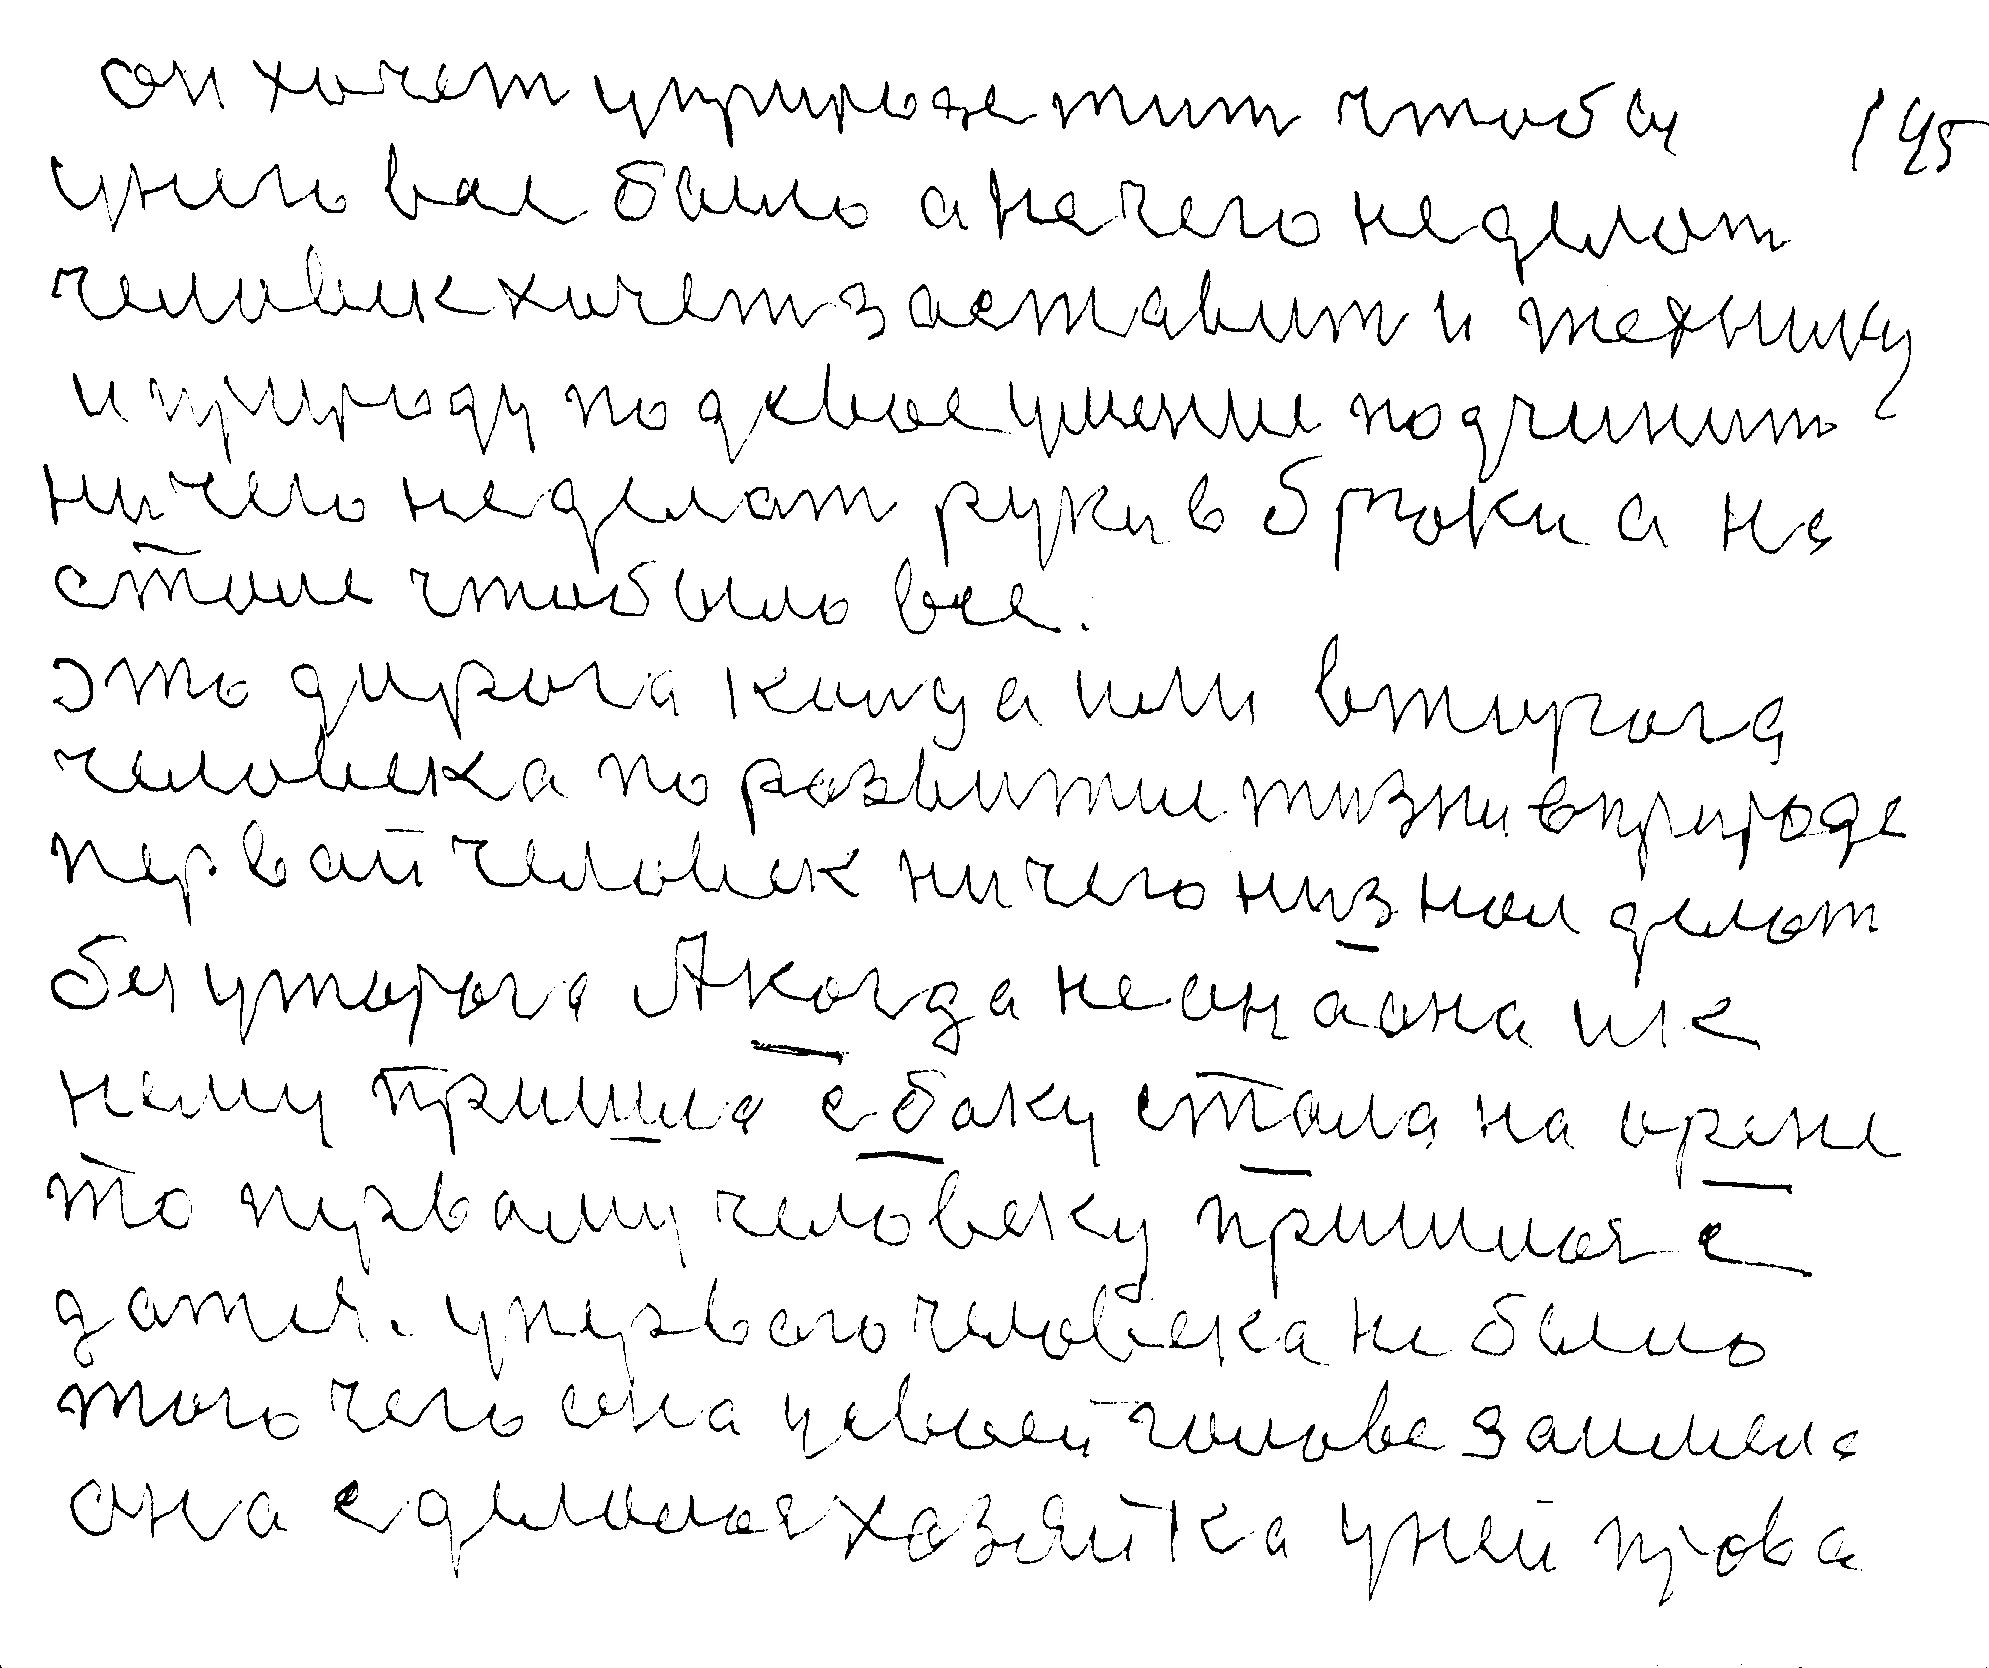 он хочет уприроде тит чтобы 145
унего все было а нечего неделат
человек хочет заставит и технику
и природу под свое умение подчинит
ничего неделат руки в брюки а на
столе чтобыло все.
это дирога кингда или втирога
человека по развитие тизни вприроде
первай человек ничего низнал делат
безуторога А когда не она она и к
нему пришла с боку стала на ороне
то первому человеку пришлоя с
датся. упервого человека не было
того чего она усвоей голове заимела
она сделолоя хозяйка уней права